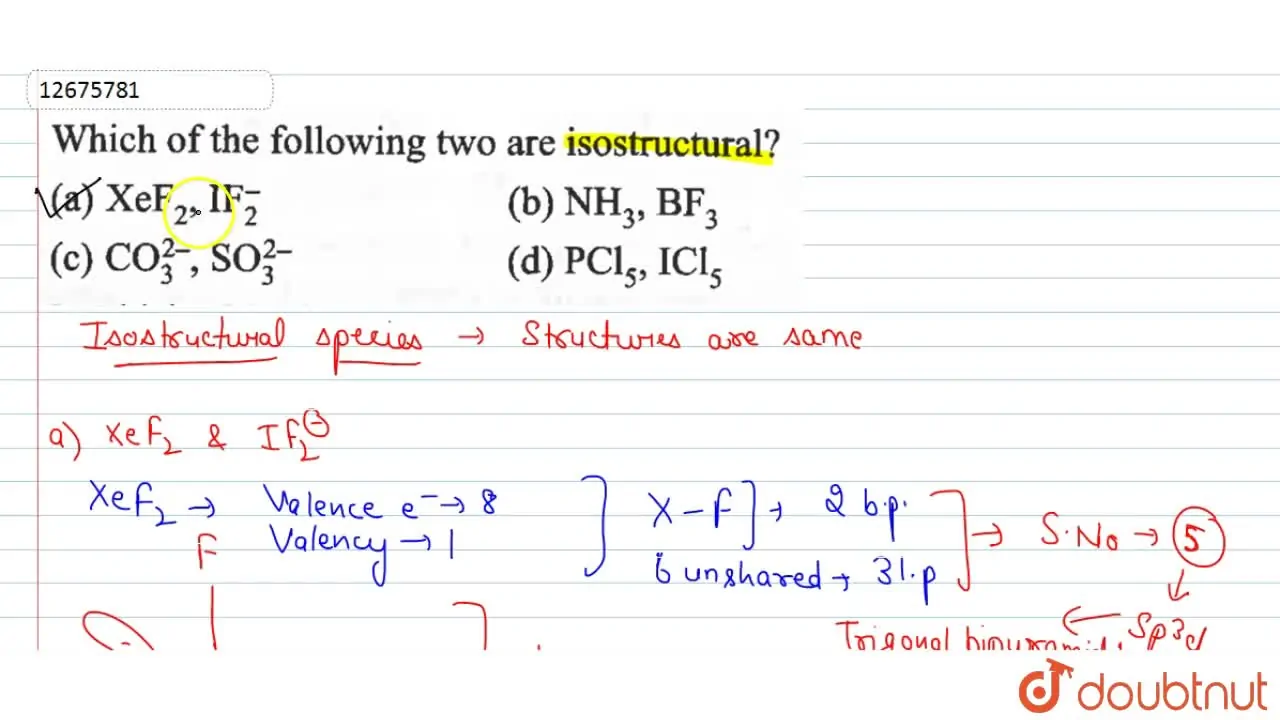 12675781
Which of the following two are isostructural?
(a) XeF₂, IF₂⁻ (b) NH₃, BF₃
(c) CO₃²⁻, SO₃²⁻ (d) PCl₅, ICl₅
Isostructural species → Structures are same
a) XeF₂ & IF₂⊖
XeF₂ → Valence e⁻ → 8 X – F → 2 b.p. S.No → 5
F Valency → 1 6 unshared → 3 l.p
Trigonal bipyramidal sp³d
doubtnut